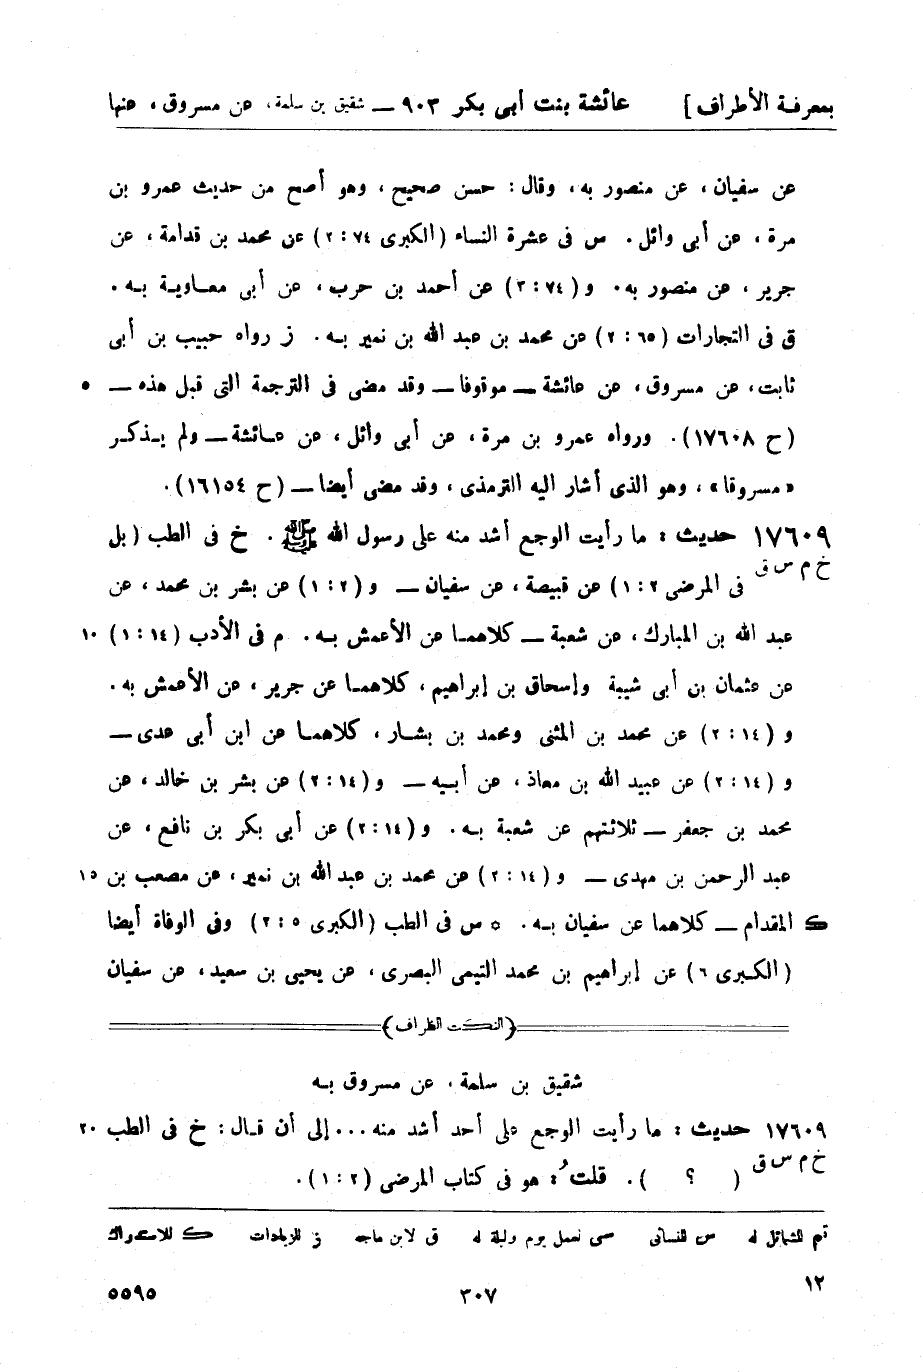 بمعرفة الأطراف] عائشة بنت أبى بكر ٩٠٣ — شقيق بن سلمة، عن مسروق، عنها
عن سفيان، عن منصور به، وقال: حسن صحيح، وهو أصح من حديث عمرو بن
مرة، عن أبى وائل. س فى عشرة النساء (الكبرى ٧٤ : ٢) عن محمد بن قدامة، عن
جرير، عن منصور به. و (٧٤ : ٣) عن أحمد بن حرب، عن أبى معـاويـة بـه.
ق فى التجارات (٦٥ : ٢) عن محمد بن عبد الله بن نمير بـه. ز رواه حبيب بن أبى
ثابت، عن مسروق، عن عائشة — موقوفا — وقد مضى فى الترجمة التى قبل هذه — ٥
(ح ١٧٦٠٨). ورواه عمرو بن مرة، عن أبى وائل، عن عـائشة — ولم يـذكـر
«مسروقا»، وهو الذى أشار اليه الترمذى، وقد مضى أيضا — (ح ١٦١٥٤).
١٧٦٠٩ حديث : ما رأيت الوجع أشد منه على رسول الله ﷺ. خ فى الطب (بل
خ م س ق فى المرضى ٢ : ١) عن قبيصة، عن سفيان — و (٢ : ١) عن بشر بن محمد، عن
عبد الله بن المبارك، عن شعبة — كلاهمـا عن الأعمش بـه. م فى الأدب (١٤ : ١) ١٠
عن عثمان بن أبى شيبة وإسحاق بن إبراهيم، كلاهمـا عن جرير، عن الأعمش به.
و (١٤ : ٢) عن محمد بن المثنى ومحمد بن بشـار، كلاهمـا عن ابن أبى عدى —
و (١٤ : ٢) عن عبيد الله بن معاذ، عن أبـيه — و (١٤ : ٢) عن بشر بن خالد، عن
محمد بن جعفر — ثلاثتهم عن شعبة بـه. و (١٤ : ٢) عن أبى بكر بن نافع، عن
عبد الرحمن بن مهدى — و (١٤ : ٢) عن محمد بن عبد الله بن نمير، عن مصعب بن ١٥
ك المقدام — كلاهما عن سفيان بـه. * س فى الطب (الكبرى ٥ : ٢) وفى الوفاة أيضا
(الكـبرى ٦) عن إبراهيم بن محمد التيمى البصرى، عن يحيى بن سعيد، عن سفيان
(النكت الظراف)
شقيق بن سلمة، عن مسروق بـه
١٧٦٠٩ حديث : ما رأيت الوجع على أحد أشد منه . . . إلى أن قـال : خ فى الطب ٢٠
خ م س ق ( ؟ ). قلتُ : هو فى كتاب المرضى (٢ : ١).
تم للشمائل له س للنسائى سى لعمل يوم وليلة له ق لابن ماجه ز للزيادات ك للاستدراك
١٢
٣٠٧ ٥٥٩٥